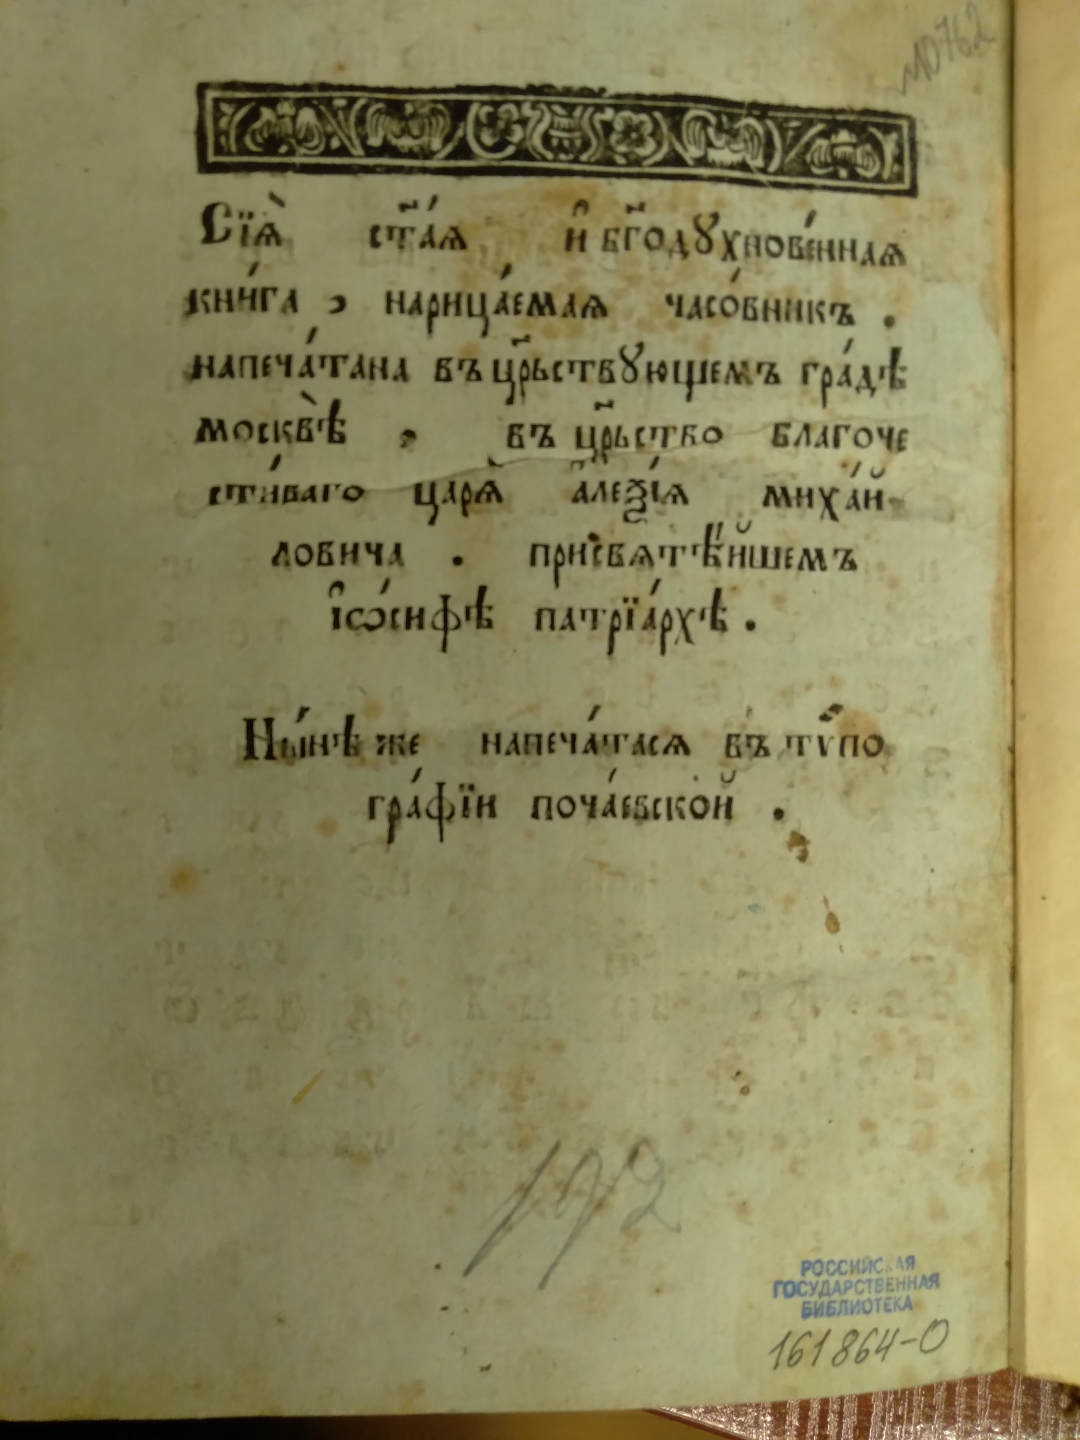 10762
Сїѧ̀ ст҃а́ѧ и҆ бг҃одꙋхнове́ннаѧ
кни́га , нарица́емаѧ часо́вникъ .
напеча́тана въ цр҃ьствꙋющемъ гра́дѣ
москвѣ̀ , въ цр҃ьство благоче
сти́ваго царѧ̀ а҆леѯі́ѧ миха́й
ловича . присвѧтѣ́йшемъ
і҆ѡ́сифѣ патрїа́рхѣ .
Ны́нѣ же напеча́тасѧ въ тѷпо
гра́фїи поча́евской .
192
РОССИЙСКАЯ
ГОСУДАРСТВЕННАЯ
БИБЛИОТЕКА
161864-О